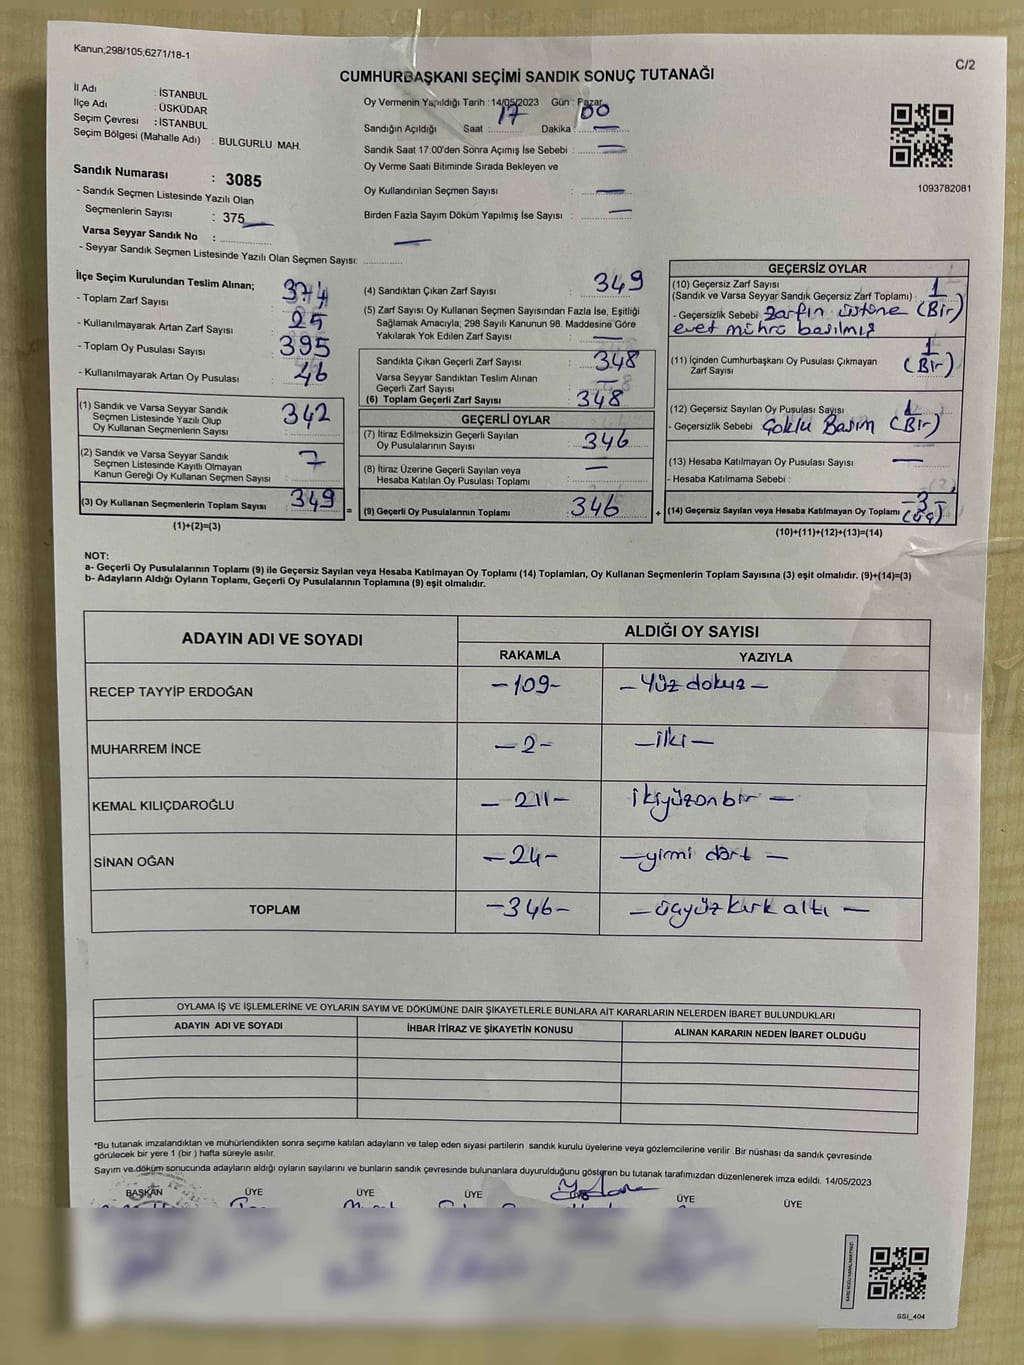 Kanun;298/105;6271/18-1
C/2
CUMHURBAŞKANI SEÇİMİ SANDIK SONUÇ TUTANAĞI
İl Adı : İSTANBUL
İlçe Adı : ÜSKÜDAR
Seçim Çevresi : İSTANBUL
Seçim Bölgesi (Mahalle Adı) : BULGURLU MAH.
Sandık Numarası : 3085
- Sandık Seçmen Listesinde Yazılı Olan
Seçmenlerin Sayısı : 375
Varsa Seyyar Sandık No :
- Seyyar Sandık Seçmen Listesinde Yazılı Olan Seçmen Sayısı: —
Oy Vermenin Yapıldığı Tarih : 14/05/2023 Gün : Pazar
Sandığın Açıldığı Saat : 17 Dakika : 00 —
Sandık Saat 17:00'den Sonra Açımış İse Sebebi : —
Oy Verme Saati Bitiminde Sırada Bekleyen ve
Oy Kullandırılan Seçmen Sayısı : —
Birden Fazla Sayım Döküm Yapılmış İse Sayısı : —
1093782081
İlçe Seçim Kurulundan Teslim Alınan;
- Toplam Zarf Sayısı : 374
- Kullanılmayarak Artan Zarf Sayısı : 25
- Toplam Oy Pusulası Sayısı : 395
- Kullanılmayarak Artan Oy Pusulası : 46
(1) Sandık ve Varsa Seyyar Sandık
Seçmen Listesinde Yazılı Olup
Oy Kullanan Seçmenlerin Sayısı : 342
(2) Sandık ve Varsa Seyyar Sandık
Seçmen Listesinde Kayıtlı Olmayan
Kanun Gereği Oy Kullanan Seçmen Sayısı : 7
(3) Oy Kullanan Seçmenlerin Toplam Sayısı : 349
(1)+(2)=(3)
=
(4) Sandıktan Çıkan Zarf Sayısı : 349
(5) Zarf Sayısı Oy Kullanan Seçmen Sayısından Fazla İse, Eşitliği
Sağlamak Amacıyla; 298 Sayılı Kanunun 98. Maddesine Göre
Yakılarak Yok Edilen Zarf Sayısı : —
Sandıkta Çıkan Geçerli Zarf Sayısı : 348
Varsa Seyyar Sandıktan Teslim Alınan
Geçerli Zarf Sayısı : —
(6) Toplam Geçerli Zarf Sayısı : 348
GEÇERLİ OYLAR
(7) İtiraz Edilmeksizin Geçerli Sayılan
Oy Pusulalarının Sayısı : 346
(8) İtiraz Üzerine Geçerli Sayılan veya
Hesaba Katılan Oy Pusulası Toplamı : —
(9) Geçerli Oy Pusulalarının Toplamı : 346
+
GEÇERSİZ OYLAR
(10) Geçersiz Zarf Sayısı
(Sandık ve Varsa Seyyar Sandık Geçersiz Zarf Toplamı) : 1
- Geçersizlik Sebebi : Zarfın üstüne (Bir)
evet mührü basılmış
(11) İçinden Cumhurbaşkanı Oy Pusulası Çıkmayan
Zarf Sayısı : 1 (Bir)
(12) Geçersiz Sayılan Oy Pusulası Sayısı : 1
- Geçersizlik Sebebi : Çoklu Basım (Bir)
(13) Hesaba Katılmayan Oy Pusulası Sayısı : —
- Hesaba Katılmama Sebebi :
(14) Geçersiz Sayılan veya Hesaba Katılmayan Oy Toplamı : -3- (üç)
(10)+(11)+(12)+(13)=(14)
NOT:
a- Geçerli Oy Pusulalarının Toplamı (9) ile Geçersiz Sayılan veya Hesaba Katılmayan Oy Toplamı (14) Toplamları, Oy Kullanan Seçmenlerin Toplam Sayısına (3) eşit olmalıdır. (9)+(14)=(3)
b- Adayların Aldığı Oyların Toplamı, Geçerli Oy Pusulalarının Toplamına (9) eşit olmalıdır.
ADAYIN ADI VE SOYADI ALDIĞI OY SAYISI
RAKAMLA YAZIYLA
RECEP TAYYİP ERDOĞAN -109- - Yüz dokuz -
MUHARREM İNCE -2- -iki-
KEMAL KILIÇDAROĞLU - 211- ikiyüzonbir -
SİNAN OĞAN -24- -yirmi dört -
TOPLAM -346- - üçyüz kırk altı -
OYLAMA İŞ VE İŞLEMLERİNE VE OYLARIN SAYIM VE DÖKÜMÜNE DAİR ŞİKAYETLERLE BUNLARA AİT KARARLARIN NELERDEN İBARET BULUNDUKLARI
ADAYIN ADI VE SOYADI İHBAR İTİRAZ VE ŞİKAYETİN KONUSU ALINAN KARARIN NEDEN İBARET OLDUĞU
*Bu tutanak imzalandıktan ve mühürlendikten sonra seçime katılan adayların ve talep eden siyasi partilerin sandık kurulu üyelerine veya gözlemcilerine verilir. Bir nüshası da sandık çevresinde
görülecek bir yere 1 (bir ) hafta süreyle asılır.
Sayım ve döküm sonucunda adayların aldığı oyların sayılarını ve bunların sandık çevresinde bulunanlara duyurulduğunu gösteren bu tutanak tarafımızdan düzenlenerek imza edildi. 14/05/2023
BAŞKAN ÜYE ÜYE ÜYE ÜYE ÜYE
SSI_404